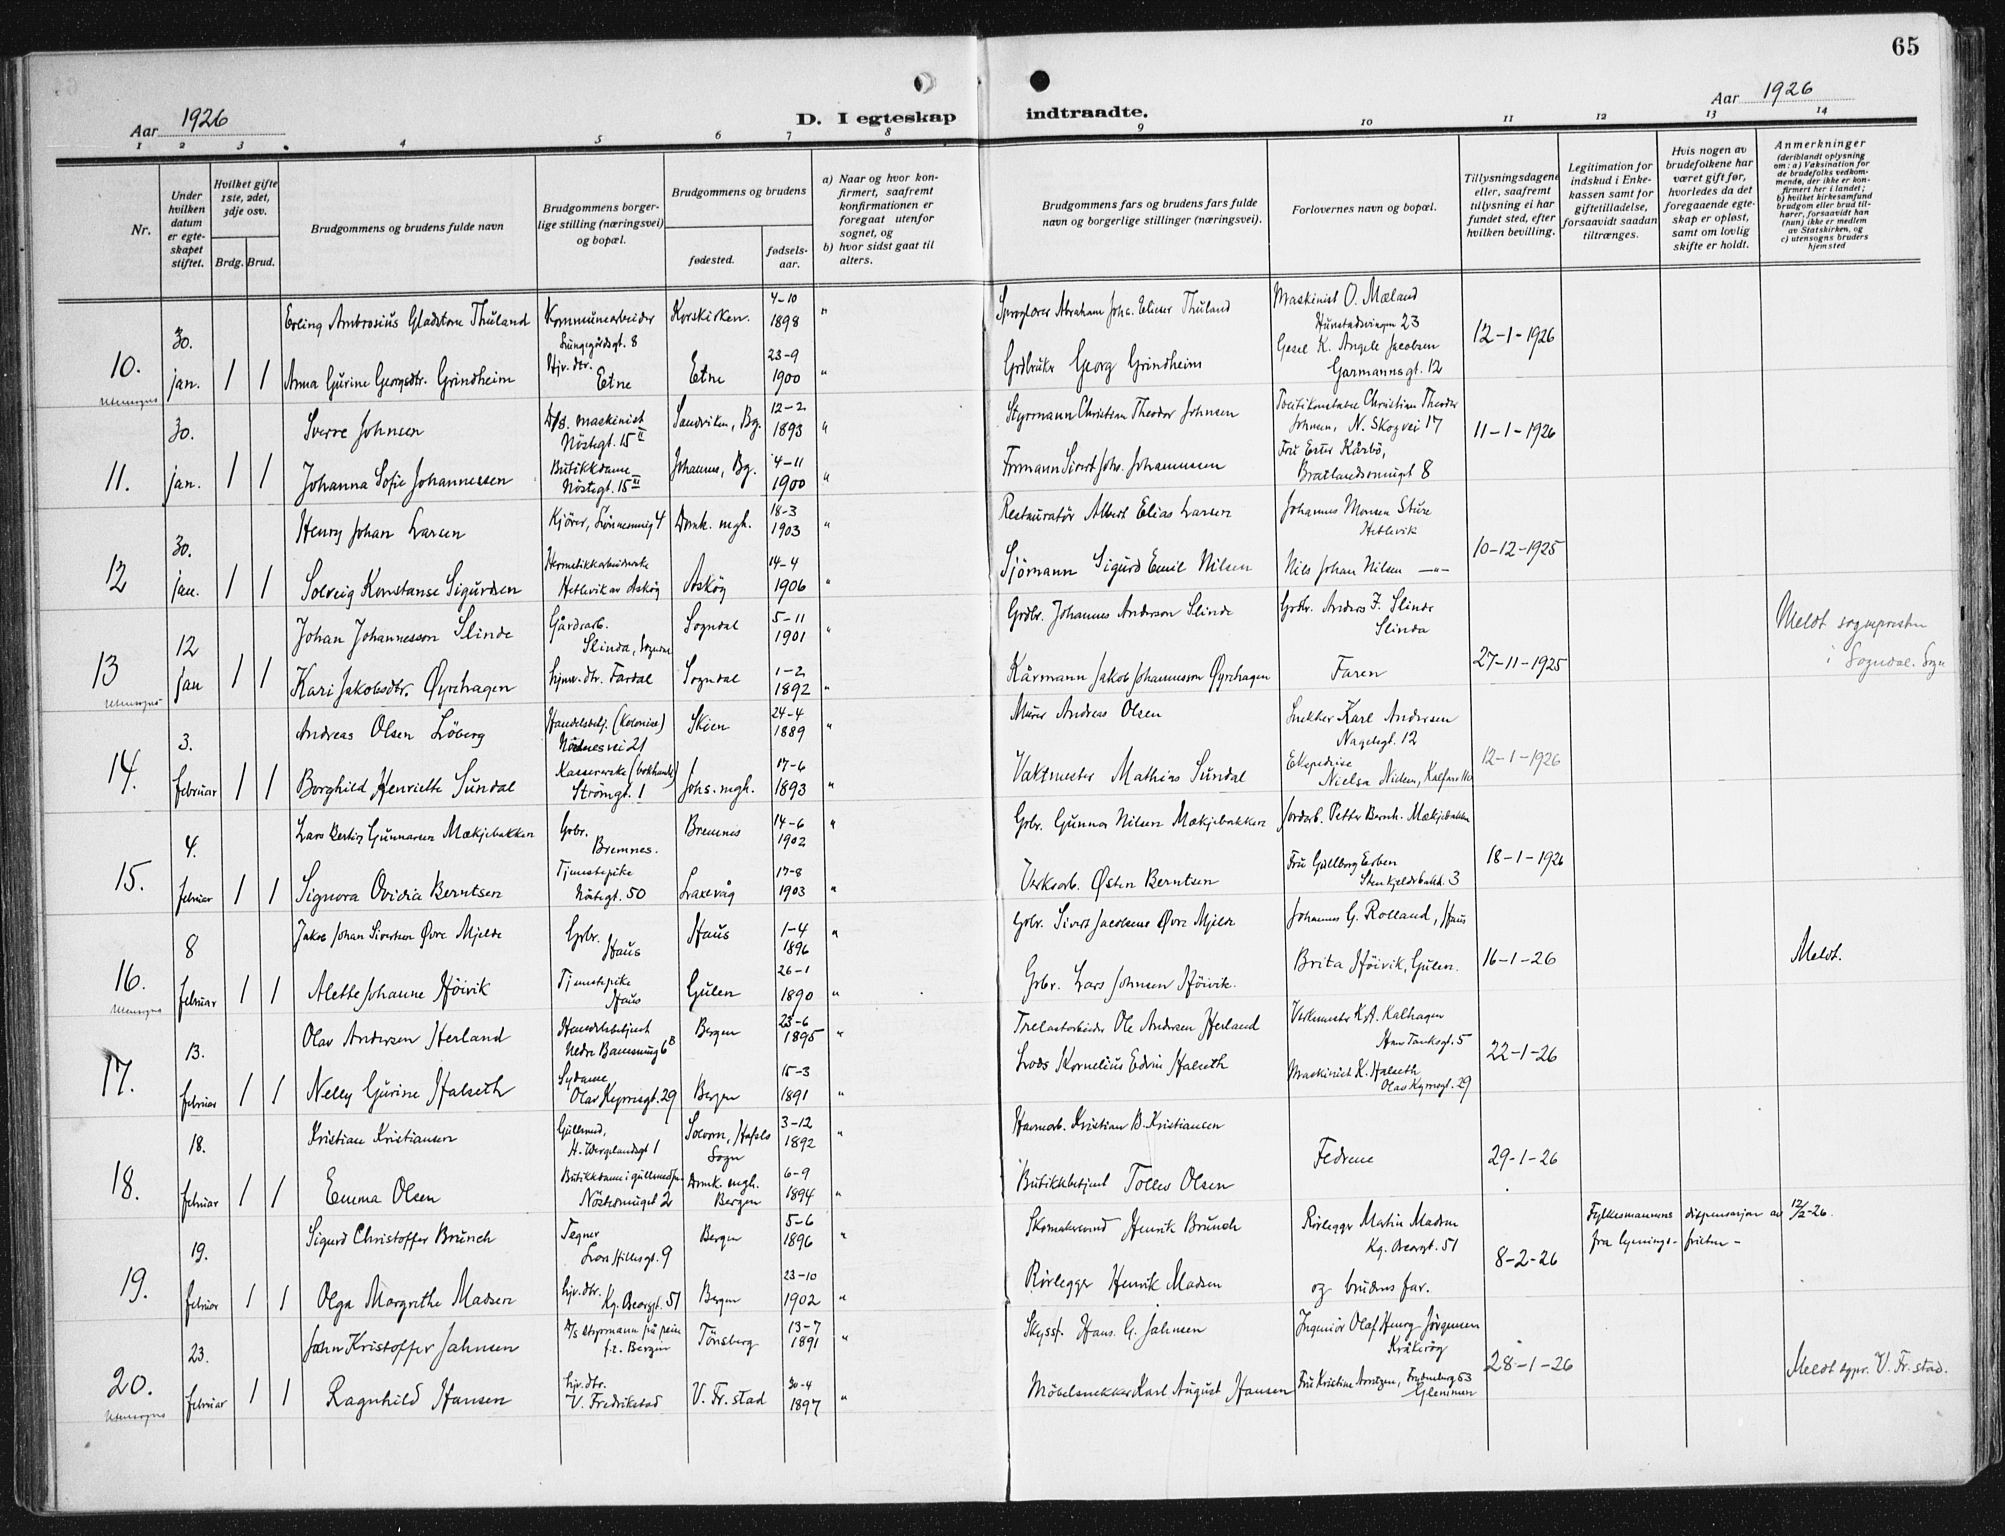 65
Aar 1926
D. I egteskap indtraadte.
Aar 1926
1 2 3 4 5 6 7 8 9 10 11 12 13 14
Nr.
Under hvilken datum er egteskapet stiftet.
Hvilket gifte 1ste, 2det, 3dje osv.
Brdg. Brud.
Brudgommens og brudens fulde navn
Brudgommens borgerlige stilling (næringsvei) og bopæl.
Brudgommens og brudens
fødested.
fødselsaar.
a) Naar og hvor konfirmert, saafremt konfirmationen er foregaat utenfor sognet, og
b) hvor sidst gaat til alters.
Brudgommens fars og brudens fars fulde navn og borgerlige stillinger (næringsvei).
Forlovernes navn og bopæl.
Tillysningsdagene eller, saafremt tillysning ei har fundet sted, efter hvilken bevilling.
Legitimation for indskud i Enkekassen samt for giftetilladelse, forsaavidt saadan tiltrænges.
Hvis nogen av brudefolkene har været gift før, hvorledes da det foregaaende egteskap er opløst, samt om lovlig skifte er holdt.
Anmerkninger
(deriblandt oplysning om: a) Vaksination for de brudefolks vedkommende, der ikke er konfirmert her i landet; b) hvilket kirkesamfund brudgom eller brud tilhører, forsaavidt han (hun) ikke er medlem av Statskirken, og c) utensogns bruders hjemsted
10. utensogns 30. jan. 1 1
Erling Ambrosius Gladstone Thuland Kommunearbeider Lungegårdsgt. 8 Korskirken. 4-10 1898 " Abraham Johs. Elieser Thuland Maskinist O. Mæland 23 12-1-1926
Anna Gurine Georgsdtr. Grindheim Hjv. dtr. Etne Etne 23-9 1900 " Grdbruker Georg Grindheim K. Angele Jacobsen Garmannsgt. 12
11. 30. jan. 1 1
Sverre Johnsen D/s. maskinist Nöstegt. 15 II Sandviken, Bg. 12-2 1893 " Styrmann Christian Theodor Johnsen Christian Theodor Johnsen, N. Skogvei 17 11-1-1926
Johanna Sofie Johannessen Butikkdame Nöstegt. 15 III Johannes, Bg. 4-11 1900 " Formann Sivert Johs. Johannessen Fru Ester Kårbö, 8
12 30. jan. 1 1
Henry Johan Larsen Kjörer, 4 Domk. mgh. 18-3 1903 " Restauratör Albert Elias Larsen Johannes Monsen Sture Hetlevik 10-12-1925
Solveig Konstanse Sigurdsen Hermetikkarbeiderske Hetlevik av Askøy Askøy 14-4 1906 " Sjömann Sigurd Emil Nilsen Nils Johan Nilsen —"—
13 utensogns 12 jan 1 1
Johan Johannesson Slinde Gårdsarb. Slinda, Sogndal Sogndal 5-11 1901 " Grdbr. Johannes Anderson Slinde Grdbr. Anders J. Slinde Slinda 27-11-1925 Meldt sognepresten i Sogndal. Sogn
Kari Jakobsdtr. Øyrehagen hjmv. dtr. Fardal Sogndal 1-2 1892 " Kårmann Jakob Johannesson Øyrehagen Faren
14. 3. februar 1 1
Andreas Olsen Löberg Handelsbetj. (kolonial) Nordnesvei 21 Skien 24-4 1889 " Murer Andreas Olsen Snekker Karl Andersen Nagelsgt. 12 12-1-1926
Borghild Henriette Sundal Kassererske (bokhandel) Strømgt. 1 Johs. mgh. 17-6 1893 " Vaktmester Mathias Sundal Ekspedrise Nielsa Nielsen,
15. 4. februar 1 1
Lars Bertin Gunnarsen Mækjebakken Grbr. Bremnes. Bremnes 14-6 1902 " Grbr. Gunnar Nilsen Mækjebakken Jordarb. Petter Bernh. Mækjebakken 18-1-1926
Signora Ovidia Berntsen Tjenestepike Nöstegt. 50 Laxevåg 17-8 1903 " Verksarb. Østen Berntsen Fru Gullborg Erbern 3
16. utensogns 8 februar 1 1
Jakob Johan Sivertsen Øvre Mjelde Grbr. Haus Haus 1-4 1896 " Grbr. Sivert Jacobsen Øvre Mjelde Johannes G. Rolland, Haus 16-1-26 Meldt.
Alette Johanne Höivik Tjenestepike Haus Gulen 26-1 1890 " Grbr. Lars Johnsen Höivik. Brita Höivik, Gulen.
17. 13. februar 1 1
Olav Andersen Herland Handelsbetjent Nedre 6 B Bergen 23-6 1895 " Trelastarbeider Ole Andersen Herland Verkmester K.A. Kalhagen Hans Tanksgt. 5 22-1-26
Nelly Gurine Halseth Sydame Olav Kyrresgt. 29 Bergen 15-3 1891 " Lods Kornelius Edvin Halseth Maskinist K. Halseth Olav Kyrresgt. 29
18. 18. februar 1 1
Kristian Kristiansen Gullsmed, H. Wergelandsgt 1 Solvorn, Hafslo Sogn 3-12 1892 " Havnarb. Kristian B. Kristiansen Fedrene 29-1-26
Emma Olsen Butikkdame i Nöstesmuget 2 Domk. mgh. Bergen 6-9 1894 " Butikkbetjent Tollev Olsen
19. 19. februar 1 1
Sigurd Christoffer Brunch Tegner Lars Hillesgt. 9 Bergen 5-6 1896 " Skomakersvend Henrik Brunch Rørlegger Martin Madsen Kg. Oscarsgt. 51 8-2-26 Fylkesmannens dispensasjon av 12/2-26. fra lysnings-fristen-
Olga Margrethe Madsen hjv. dtr. Kg. Oscarsgt. 51 Bergen 23-10 1902 " Rørlegger Henrik Madsen og brudens far.
20. utensogns 23. februar 1 1
John Kristoffer Jahnsen D/s styrmann på reise f.t. Bergen Tönsberg 13-7 1891 " Skyssf. Hans. G. Jahnsen Ingeniör Olaf Henry Jörgensen Kråkeröy 28-1-26 Meldt sgpr. V. Fr. stad.
Ragnhild Hansen hjv. dtr. V. Fredrikstad V. Fr. stad 30-4 1897 " Möbelsnekker Karl August Hansen Fru Kristine Arntzen, 53 Glemmen